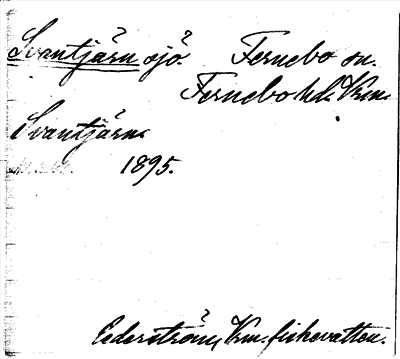 Svantjärn sjö Fernebo sn.
Fernebo hd. Vrm.
Svantjärn
1895.
Cederström, Vrm. fiskevatten.